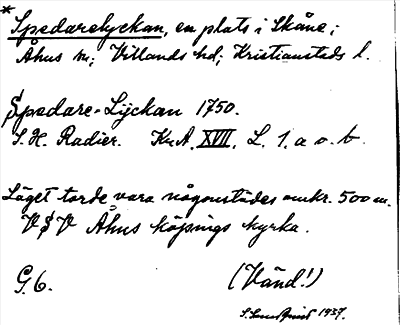 * Spedarelyckan, en plats i Skåne;
Åhus sn; Villands hd; Kristianstads l.
Spedare-Lyckan 1750.
S. H. Radier. Kr. A. XVII. L. 1. a o. b.
Läget torde vara någonstädes omkr. 500 m.
VSV Åhus köpings kyrka.
G. 6. (Vänd!)
1937.